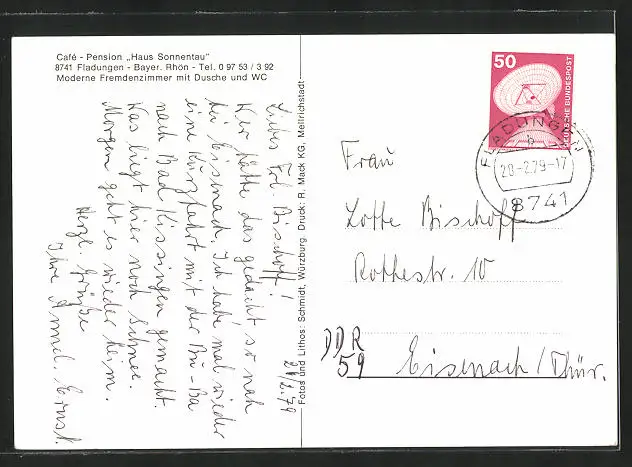 Café - Pension „Haus Sonnentau"
8741 Fladungen - Bayer. Rhön - Tel. 0 97 53 / 3 92
Moderne Fremdenzimmer mit Dusche und WC
28/2.79
Liebes Frl. Bischoff!
Wer hätte das gedacht so nah
bei Eisenach. Ich habe mal wieder
eine Kurzfahrt mit der Bu-Ba
nach Bad Kissingen gemacht.
Was liegt hier noch Schnee.
Morgen geht es wieder heim.
Herzl. Grüße
Ihre Annel. Ernst.
Fotos und Lithos: Schmidt, Würzburg. Druck: R. Mack KG, Mellrichstadt
50
DEUTSCHE BUNDESPOST
FLADUNGEN
b
28-2.79-17
8741
Frau
Lotte Bischoff
Rothestr. 10
DDR
59 Eisenach/Thür.